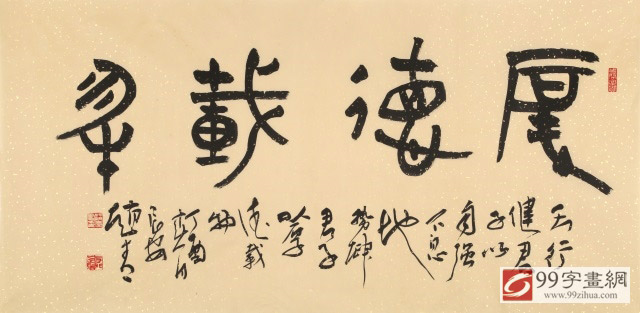 厚德載物
天行
健君
子以
自强
不息
地
勢坤
君子
以厚
德載
物
長安
99字畫網
www.99zihua.com